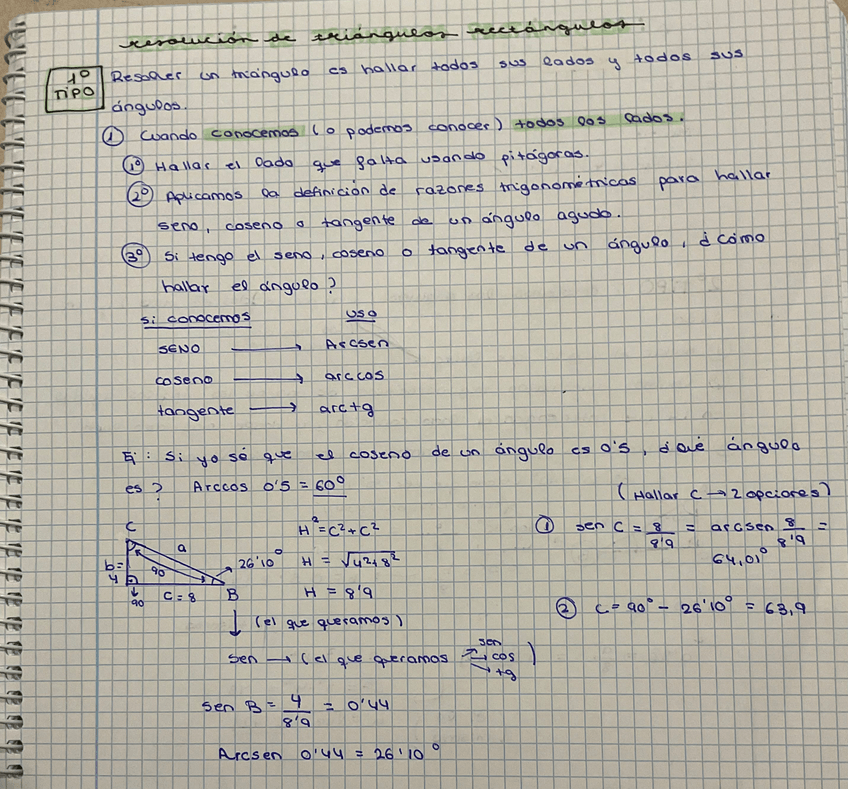 resolución de triángulos rectángulos
1º TIPO
Resolver un triángulo es hallar todos sus lados y todos sus
ángulos.
① Cuando conocemos (o podemos conocer) todos los lados.
1º Hallar el lado que falta usando pitágoras.
2º Aplicamos la definición de razones trigonométricas para hallar
seno, coseno o tangente de un ángulo agudo.
3º Si tengo el seno, coseno o tangente de un ángulo, ¿cómo
hallar el ángulo?
si conocemos uso
SENO → Arcsen
coseno → arccos
tangente → arctg
Ej: Si yo sé que el coseno de un ángulo es 0'5, ¿qué ángulo
es? Arccos 0'5 = 60º
(Hallar C → 2 opciones)
C
a
b=
4
90
90
c = 8
B
26'10º
H² = C² + C²
H = √4²+8²
H = 8'9
① sen C = 8/8'9 = arcsen 8/8'9 =
64,01º
② C = 90º - 26'10º = 63,9
↓ (el que queramos)
sen → (el que queramos → sen → cos → tg)
sen B = 4/8'9 = 0'44
Arcsen 0'44 = 26'10º